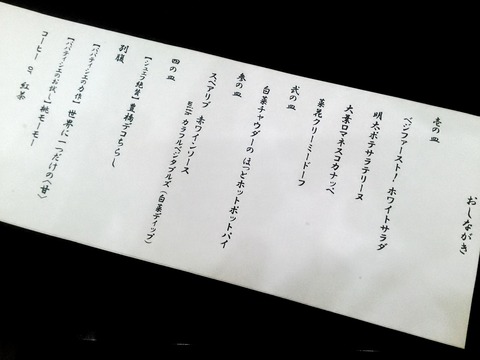 おしながき
壱の皿
ベジファースト！ホワイトサラダ
明太ポテサラテリーヌ
大葉ロマネスコカナッペ
弐の皿
菜花クリーミードーフ
参の皿
白菜チャウダーのほっとホットポットパイ
四の皿
スペアリブ ホワインソース
with カラフルベジタブルズ（白菜ディップ）
別腹
【シェフ絶賛】豊橋デコちらし
【パパティシエの力作】世界に一つだけの〈甘〉
【パパティシエのお試し】桃モーモー
コーヒー or 紅茶